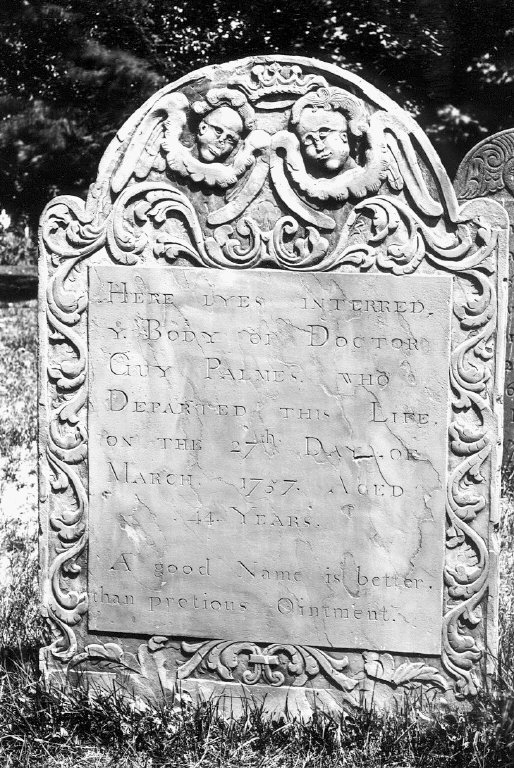 HERE LYES INTERRED,
Y. BODY OF DOCTOR
GUY PALMES. WHO
DEPARTED THIS LIFE.
ON THE 27th DAY OF
MARCH. 1757. AGED
44 YEARS.
A good Name is better.
than pretious Ointment.